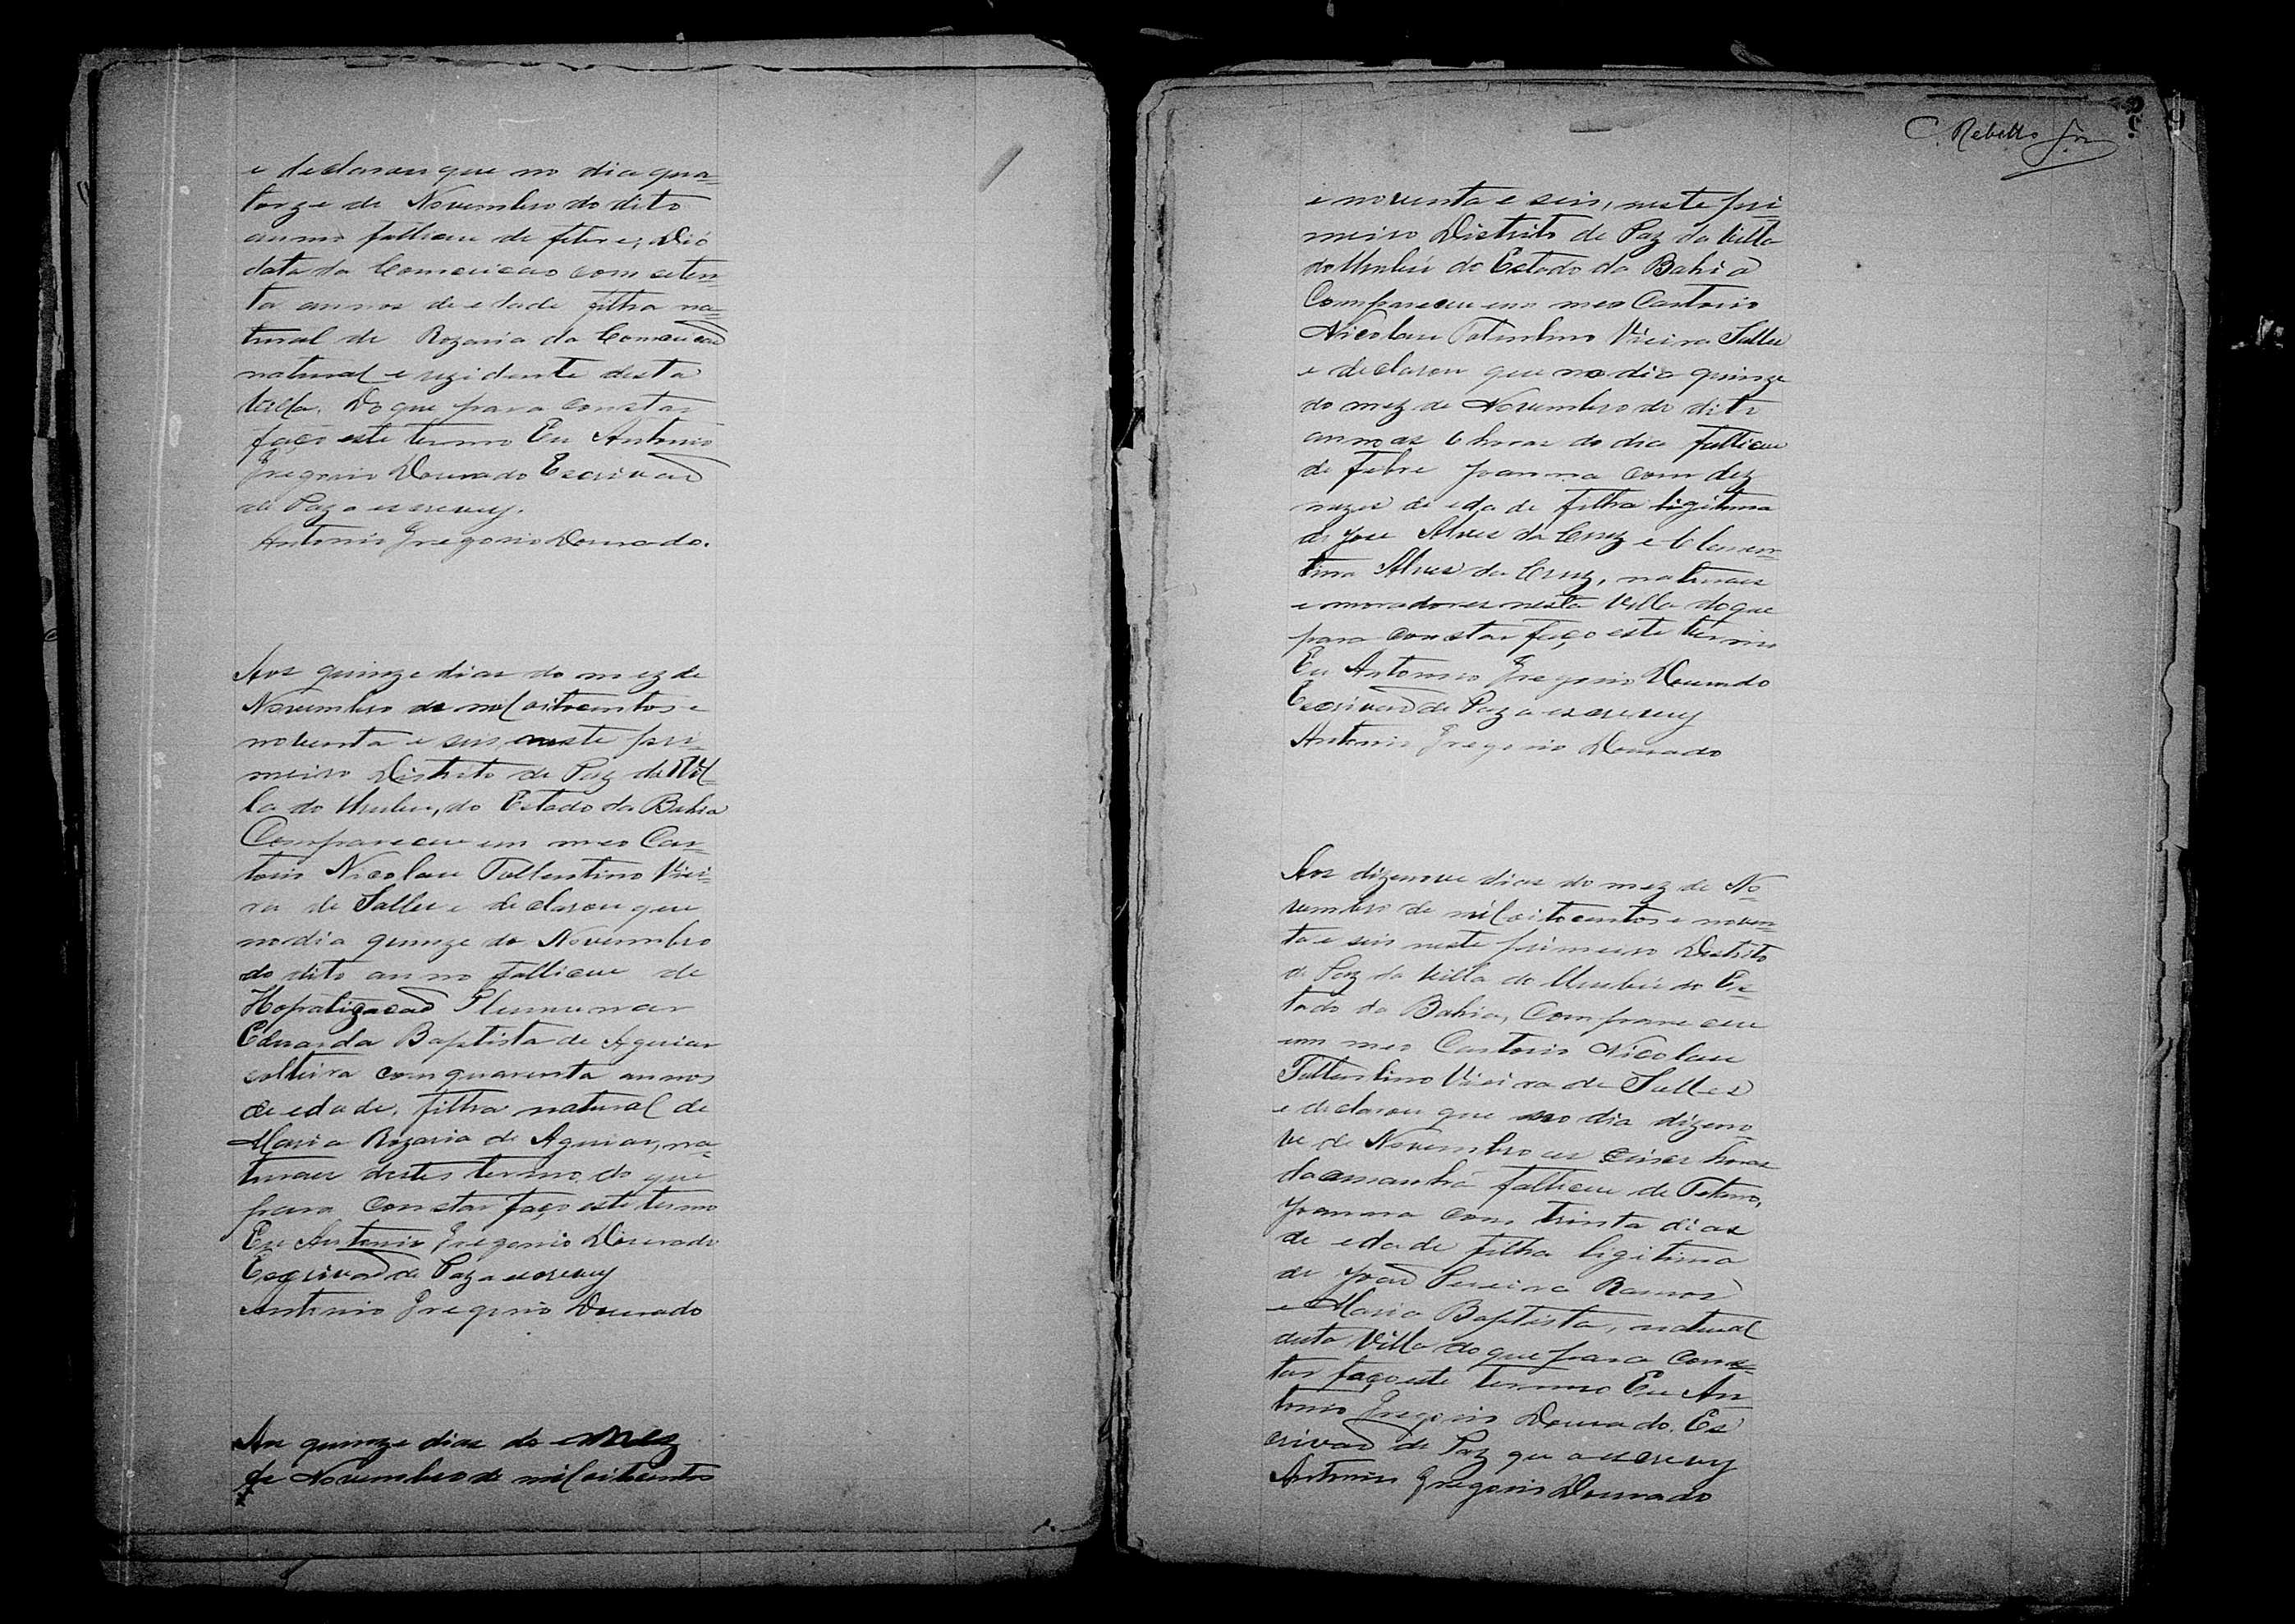 e declarou que no dia qua=
torze de Novembro do dito
anno falleceu de febre, Deó
data da Conceicão com seten=
ta annos de edade filha na=
tural de Rozaria da Conceicão
natural e rezidente desta
Villa. Do que para constar
faço este termo Eu Antonio
Gregorio Dourado Escrivão
de Paz a escrevy.
Antonio Gregorio Dourado.
Aos quinze dias do mez de
Novembro de mil oitocentos e
noventa e seis, neste pri=
meiro Districto de Paz da Vil=
la do Urubu, do Estado da Bahia
Compareceu em meo Car=
torio Nicolau Tollentino Viei=
ra de Salles e declarou que
no dia quinze de Novembro
do dito anno falleceu de
Eduarda Baptista de Aguiar
solteira com quarenta annos
de edade, filha natural de
Maria Rozaria de Aguiar, na=
turaes destes termo, do que
para constar faço este termo
Eu Antonio Gregorio Dourado
Escrivão de Paz a escrevy
Antonio Gregorio Dourado
Aos quinze dias do mez
de Novembro de mil oitocentos
C. Rebello Jr.
e noventa e seis, neste pri
meiro Districto de Paz da Villa
do Urubú do Estado da Bahia
Compareceu em meo Cartorio
Nicolau Tolentino Vieira Salles
e declarou que no dia quinze
do mez de Novembro do dito
anno as 6 horas do dia falleceu
de febre Joanna com dez
mezes de edade filha ligitima
de Jose Alves da Cruz e Clemen=
tina Alves da Cruz, naturaes
e moradores nesta Villa do que
para constar faço este termo
Eu Antonio Gregorio Dourado
Escrivão de Paz a escrevy
Antonio Gregorio Dourado
Aos dizenove dias do mez de No=
vembro de mil oitocentos e noven=
ta e seis neste primeiro Districto
de Paz da Villa do Urubú do Es=
tado da Bahia, Compareceu
em meo Cartorio Nicolau
Tollentino Vieira de Salles
e declarou que no dia dizeno
ve de Novembro as cinco horas
da manhã falleceu de Tetano,
Joanna com trinta dias
de edade filha ligitima
de João Pereira Ramos
e Maria Baptista, natural
desta Villa do que para cons=
tar faço este termo Eu An
tonio Gregorio Dourado. Es
crivão de Paz que a escrevy
Antonio Gregorio Dourado